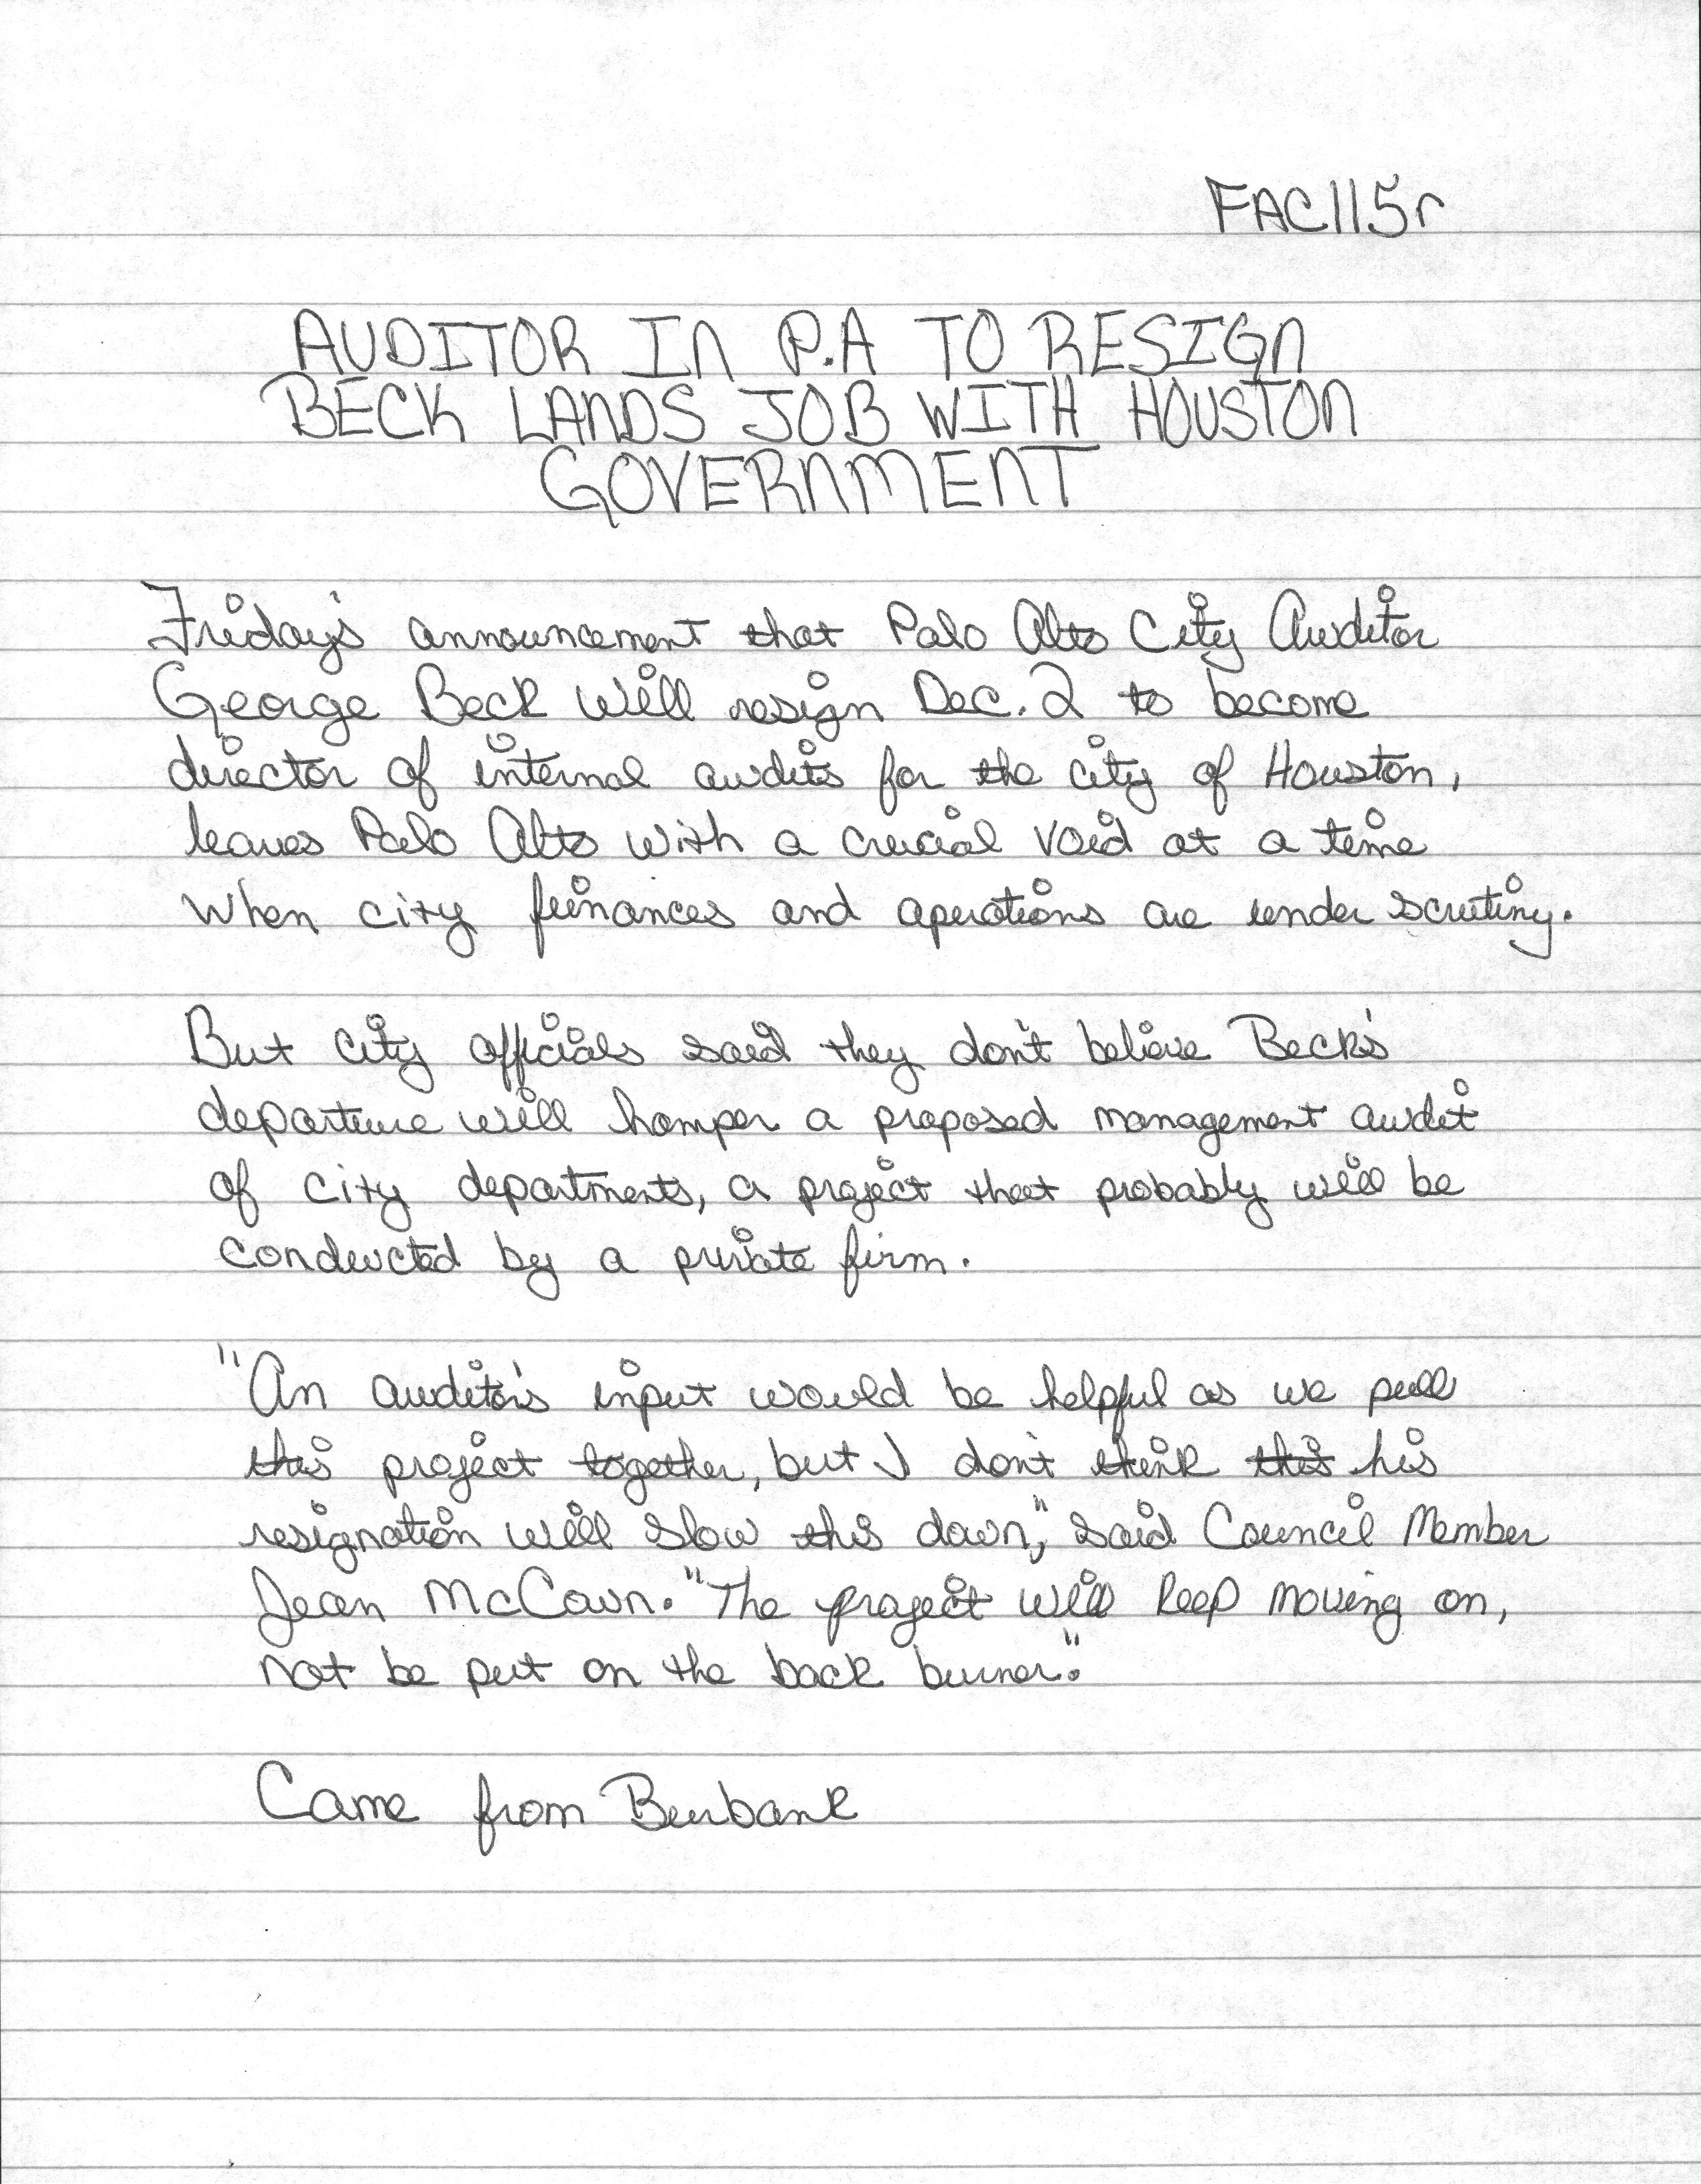 FAC115r
AUDITOR IN P.A TO RESIGN
BECK LANDS JOB WITH HOUSTON
GOVERNMENT
Friday's announcement that Palo Alto City Auditor
George Beck will resign Dec. 2 to become
director of internal audits for the city of Houston,
leaves Palo Alto with a crucial void at a time
when city finances and operations are under scrutiny.
But city officials said they don't believe Beck's
departure will hamper a proposed management audit
of city departments, a project that probably will be
conducted by a private firm.
"An auditor's input would be helpful as we pull
this project together, but I don't think this his
resignation will slow this down," said Council Member
Jean McCown. "The project will keep moving on,
not be put on the back burner."
Came from Burbank